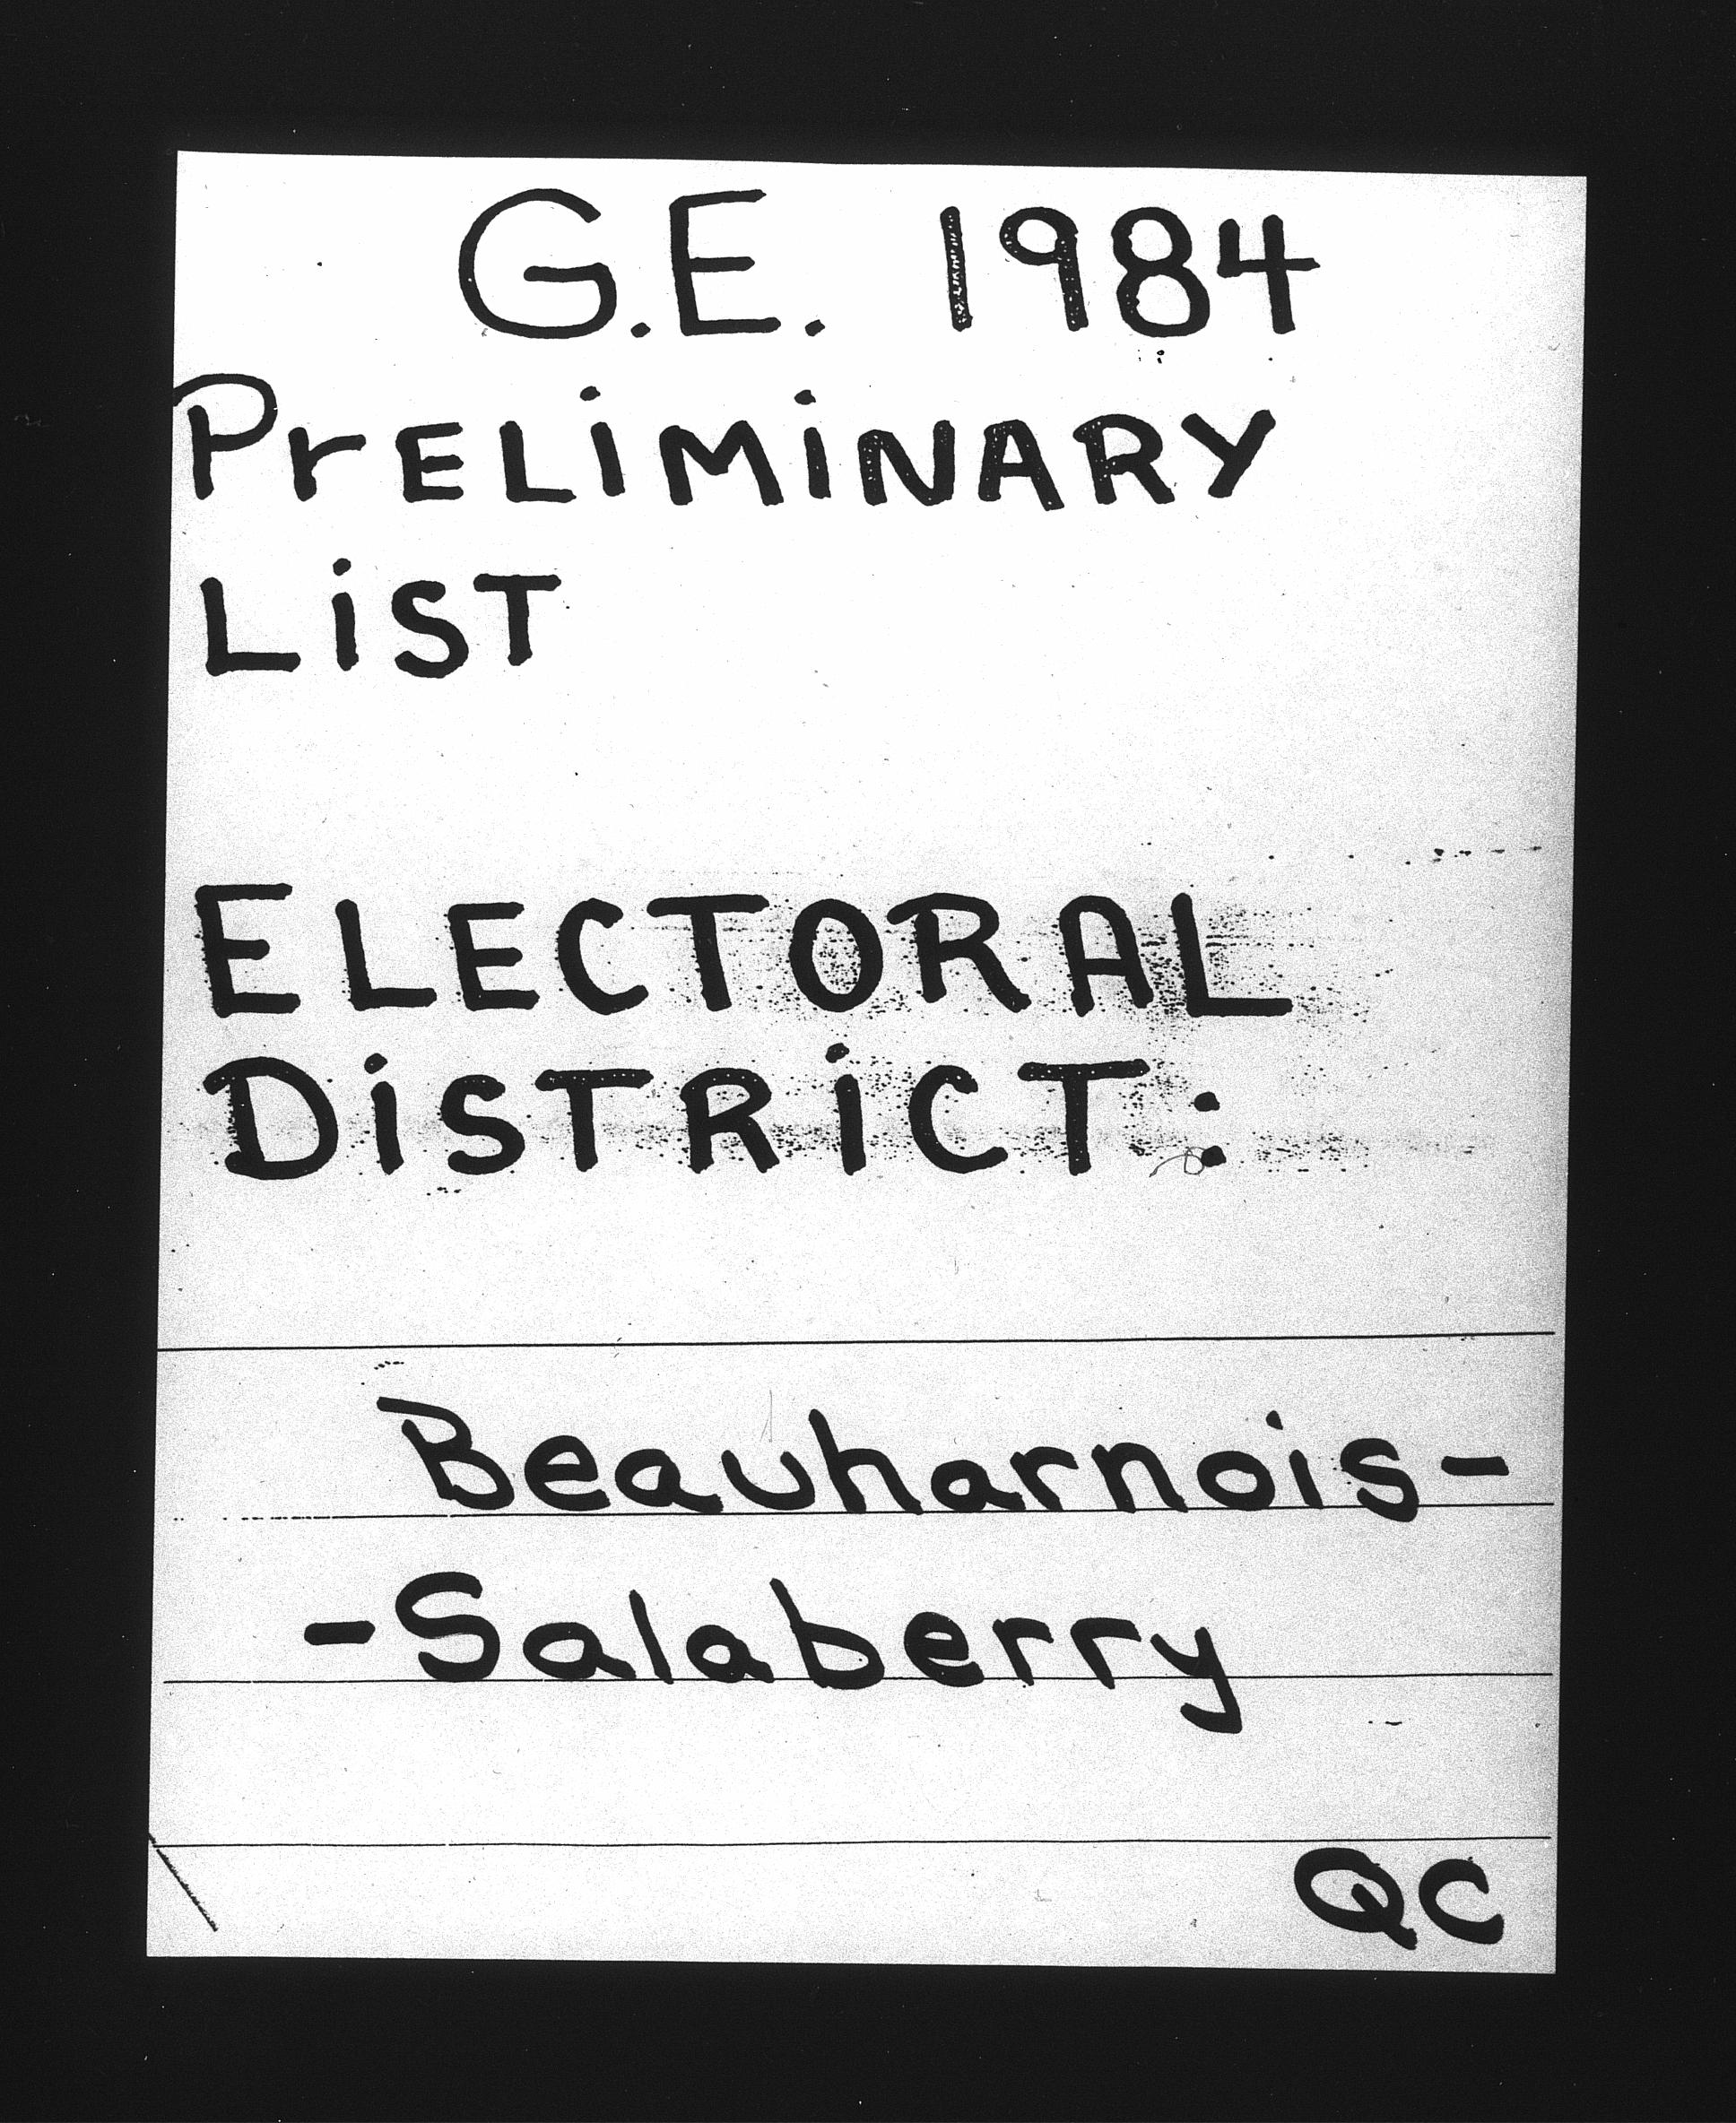 G.E. 1984
PrELiMiNARY
LiST
ELECTORAL
DiSTRiCT:
Beauharnois-
-Salaberry
QC